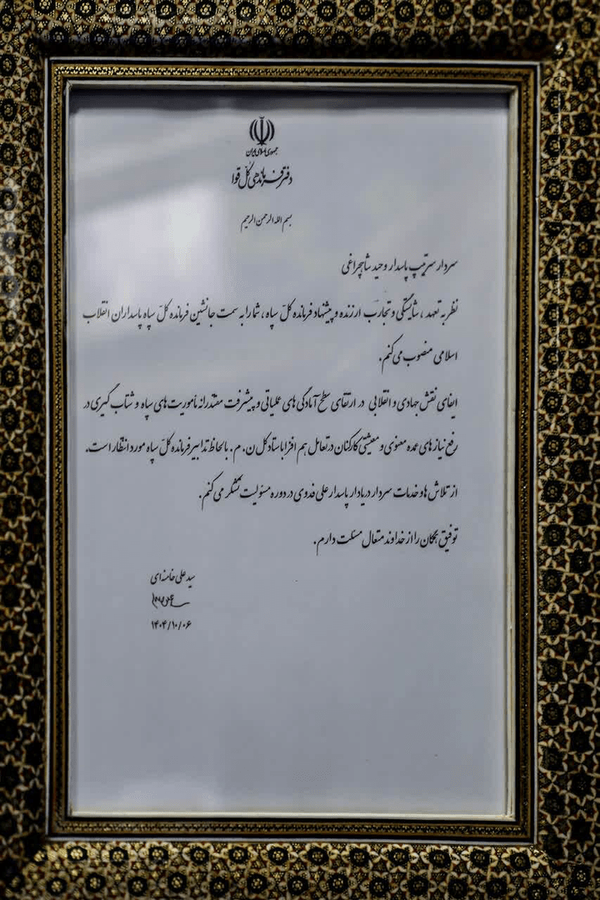 جمهوری اسلامی ایران
دفتر فرماندهی کل قوا
بسم الله الرحمن الرحیم
سردار سرتیپ پاسدار وحید شاهچراغی
نظر به تعهد، شایستگی و تجارب ارزنده و پیشنهاد فرمانده کل سپاه، شما را به سمت جانشین فرمانده کل سپاه پاسداران انقلاب
اسلامی منصوب می‌کنم.
ایفای نقش جهادی و انقلابی در ارتقای سطح آمادگی‌های عملیاتی و پیشرفت مقتدرانه مأموریت‌های سپاه و شتاب گیری در
رفع نیازهای عمده معنوی و معیشتی کارکنان در تعامل هم افزا با ستاد کل ن.م. با لحاظ تدابیر فرمانده کل سپاه مورد انتظار است.
از تلاش‌ها و خدمات سردار دریادار پاسدار علی فدوی در دوره مسئولیت تشکر می‌کنم.
توفیق همگان را از خداوند متعال مسئلت دارم.
سید علی خامنه‌ای
۱۴۰۴/۱۰/۰۶